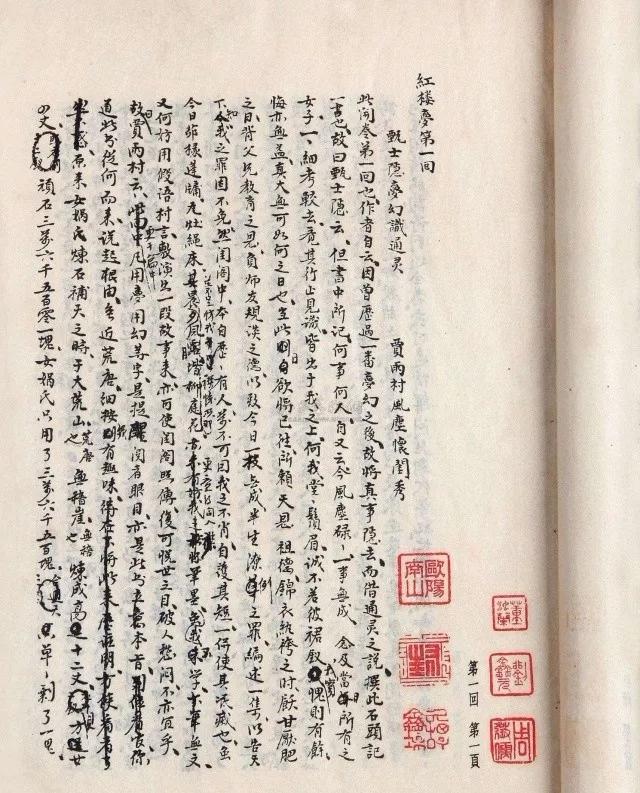 紅楼夢第一回
甄士隐夢幻識通灵　賈雨村風塵懷閨秀
此闲卷第一回也作者自云因曾歷過一番夢幻之後故将真事隐去而借通灵之說撰此石頭記
一書也故曰甄士隐云、但書中所記何事何人自又云今風塵碌、一事無成念及當日所有之
女子一、細考較去竟其行止見識皆出于我之上何我堂、鬚眉誠不若彼裙釵我實愧則有餘
悔亦無益真大無可如何之日也当此則自欲将已往所賴天恩祖德錦衣紈袴之时飫甘厭肥
之日背父兄教育之恩負师友規谈之德以致今日一技無成半生潦倒之罪編述一集以告天
下知我之罪固不免然闺阁中本自歷、有人萬不可因我之不肖自護其短一併使其泯滅也虽
今日茅椽蓬牖瓦灶绳床其晨夕風露階柳庭花我未学下筆無文
又何妨用假语村言敷演出一段故事来亦可使闺阁照傳復可悦世之目破人愁闷不亦宜乎
故曰賈雨村云、中凡用夢用幻等字是提醒阅者眼目亦是此书立意本旨看官你
道此书從何而来说起根由虽近荒唐細按则有趣味待在下将此来歷注明方使看者了
然不惑原来女媧氏煉石補天之時于大荒山荒唐也無稽崖無稽也煉成高十二丈方廿
四丈頑石三萬六千五百零一塊女媧氏只用了三萬六千五百塊單、剩了一塊
第一回 第一頁
歐陽南山